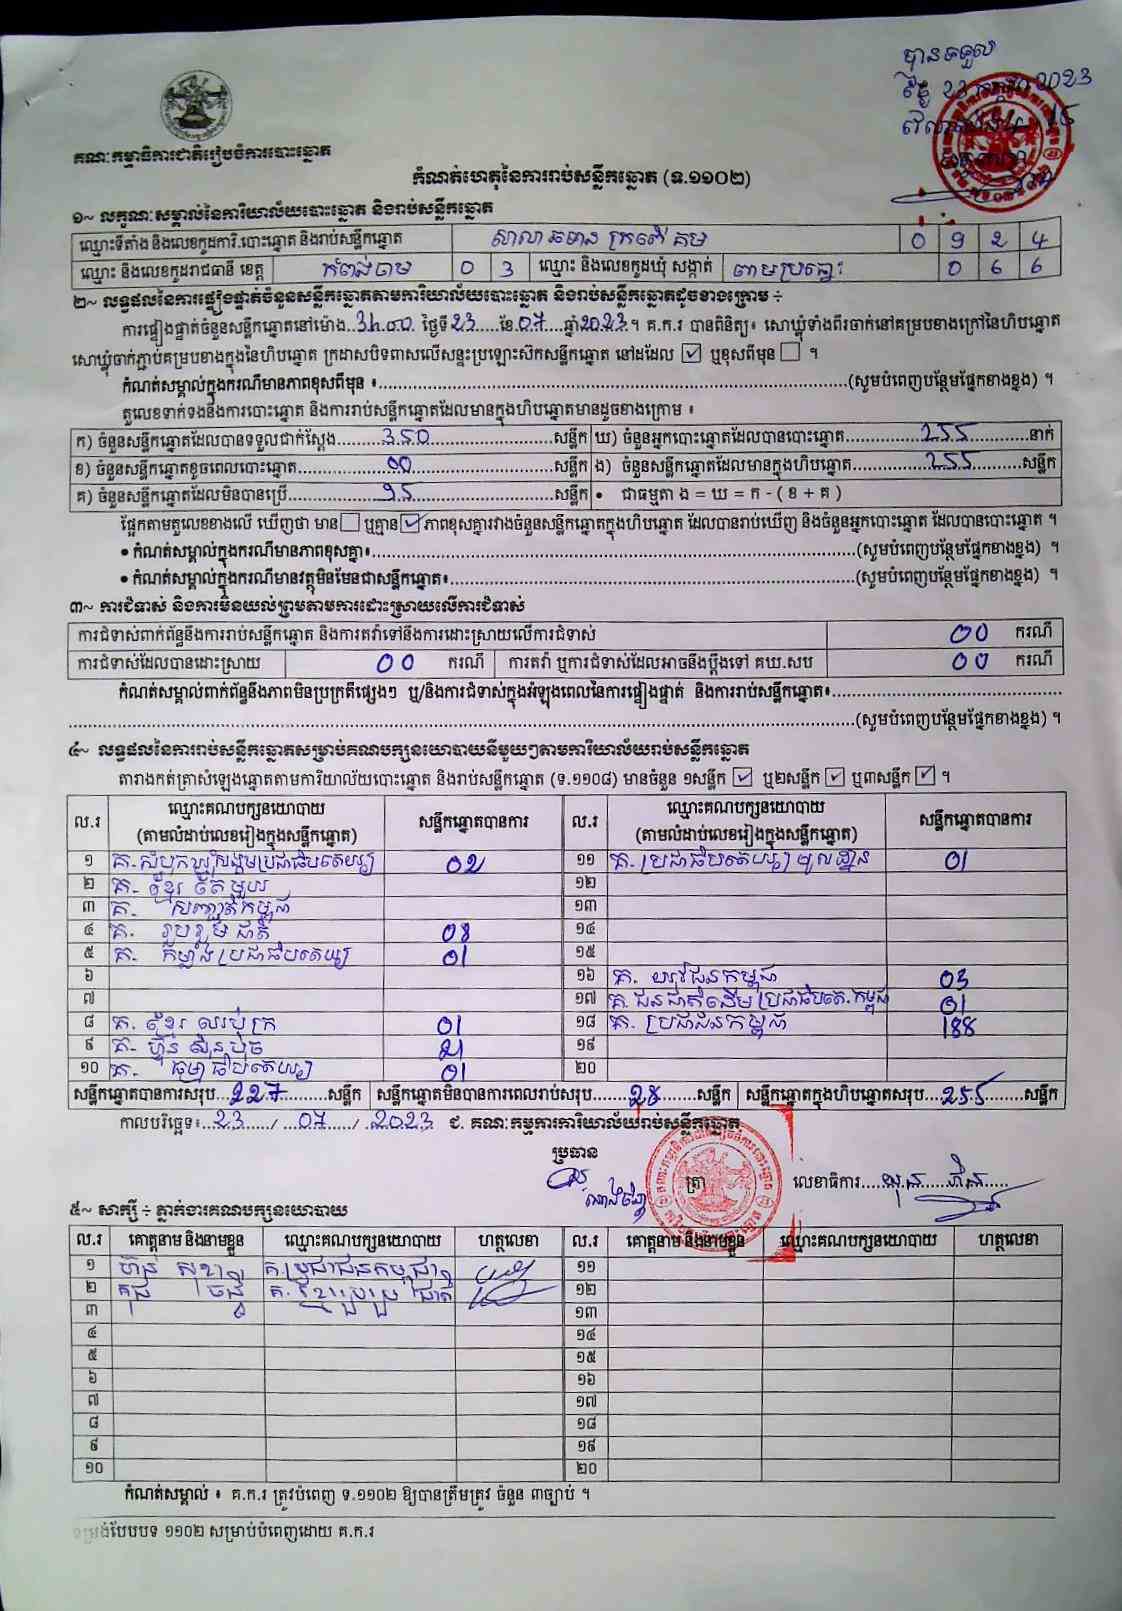 បានទទួល
គណៈកម្មាធិការជាតិរៀបចំការបោះឆ្នោត
កំណត់ហេតុនៃការរាប់សន្លឹកឆ្នោត (ទ.១១០២)
១~ លក្ខណៈសម្គាល់នៃការិយាល័យបោះឆ្នោត និងរាប់សន្លឹកឆ្នោត
ឈ្មោះទីតាំង និងលេខកូដការិ.បោះឆ្នោត និងរាប់សន្លឹកឆ្នោត សាលា 0 9 2 4
ឈ្មោះ និងលេខកូដរាជធានី ខេត្ត កំពង់ចាម 0 3 ឈ្មោះ និងលេខកូដឃុំ សង្កាត់ 0 6 6
២~ លទ្ធផលនៃការផ្ទៀងផ្ទាត់ចំនួនសន្លឹកឆ្នោតតាមការិយាល័យបោះឆ្នោត និងរាប់សន្លឹកឆ្នោតដូចខាងក្រោម ÷
ការផ្ទៀងផ្ទាត់ចំនួនសន្លឹកឆ្នោតនៅម៉ោង..3h.00. ថ្ងៃទី23.....ខែ.07....ឆ្នាំ2023.។ គ.ក.រ បានពិនិត្យ៖ សោឃ្លុំទាំងពីរចាក់នៅគម្របខាងក្រៅនៃហិបឆ្នោត
សោឃ្លុំចាក់ភ្ជាប់គម្របខាងក្នុងនៃហិបឆ្នោត ក្រដាសបិទពាសលើសន្ទះប្រឡោះស៊កសន្លឹកឆ្នោត នៅដដែល ☑ ឬខុសពីមុន ☐ ។
កំណត់សម្គាល់ក្នុងករណីមានភាពខុសពីមុន ៖..........(សូមបំពេញបន្ថែមផ្នែកខាងខ្នង) ។
តួលេខទាក់ទងនឹងការបោះឆ្នោត និងការរាប់សន្លឹកឆ្នោតដែលមានក្នុងហិបឆ្នោតមានដូចខាងក្រោម ៖
ក) ចំនួនសន្លឹកឆ្នោតដែលបានទទួលជាក់ស្តែង........350........សន្លឹក ឃ) ចំនួនអ្នកបោះឆ្នោតដែលបានបោះឆ្នោត........255........នាក់
ខ) ចំនួនសន្លឹកឆ្នោតខូចពេលបោះឆ្នោត........00........សន្លឹក ង) ចំនួនសន្លឹកឆ្នោតដែលមានក្នុងហិបឆ្នោត........255........សន្លឹក
គ) ចំនួនសន្លឹកឆ្នោតដែលមិនបានប្រើ........95........សន្លឹក • ជាធម្មតា ង = ឃ = ក - ( ខ + គ )
ផ្អែកតាមតួលេខខាងលើ ឃើញថា មាន ☐ ឬគ្មាន ☑ ភាពខុសគ្នារវាងចំនួនសន្លឹកឆ្នោតក្នុងហិបឆ្នោត ដែលបានរាប់ឃើញ និងចំនួនអ្នកបោះឆ្នោត ដែលបានបោះឆ្នោត ។
• កំណត់សម្គាល់ក្នុងករណីមានភាពខុសគ្នា៖..........(សូមបំពេញបន្ថែមផ្នែកខាងខ្នង) ។
• កំណត់សម្គាល់ក្នុងករណីមានវត្ថុមិនមែនជាសន្លឹកឆ្នោត៖..........(សូមបំពេញបន្ថែមផ្នែកខាងខ្នង) ។
៣~ ការជំទាស់ និងការមិនយល់ព្រមតាមការដោះស្រាយលើការជំទាស់
ការជំទាស់ពាក់ព័ន្ធនឹងការរាប់សន្លឹកឆ្នោត និងការតវ៉ាទៅនឹងការដោះស្រាយលើការជំទាស់ 00 ករណី
ការជំទាស់ដែលបានដោះស្រាយ 00 ករណី ការតវ៉ា ឬការជំទាស់ដែលអាចនឹងប្តឹងទៅ គឃ.សប 00 ករណី
កំណត់សម្គាល់ពាក់ព័ន្ធនឹងភាពមិនប្រក្រតីផ្សេងៗ ឬ/និងការជំទាស់ក្នុងអំឡុងពេលនៃការផ្ទៀងផ្ទាត់ និងការរាប់សន្លឹកឆ្នោត៖..........
..........(សូមបំពេញបន្ថែមផ្នែកខាងខ្នង) ។
៤~ លទ្ធផលនៃការរាប់សន្លឹកឆ្នោតសម្រាប់គណបក្សនយោបាយនីមួយៗតាមការិយាល័យរាប់សន្លឹកឆ្នោត
តារាងកត់ត្រាសំឡេងឆ្នោតតាមការិយាល័យបោះឆ្នោត និងរាប់សន្លឹកឆ្នោត (ទ.១១០៨) មានចំនួន ១សន្លឹក ☑ ឬ២សន្លឹក ☑ ឬ៣សន្លឹក ☑ ។
ល.រ ឈ្មោះគណបក្សនយោបាយ សន្លឹកឆ្នោតបានការ ល.រ ឈ្មោះគណបក្សនយោបាយ សន្លឹកឆ្នោតបានការ
(តាមលំដាប់លេខរៀងក្នុងសន្លឹកឆ្នោត) (តាមលំដាប់លេខរៀងក្នុងសន្លឹកឆ្នោត)
១ គ.សំបុកឃ្មុំសង្គមប្រជាធិបតេយ្យ 02 ១១ គ. ប្រជាធិបតេយ្យមូលដ្ឋាន 01
២ គ. ខ្មែរតែមួយ ១២
៣ គ. សញ្ជាតិកម្ពុជា ១៣
៤ គ. រួបរួមជាតិ 08 ១៤
៥ គ. កម្លាំងប្រជាធិបតេយ្យ 01 ១៥
៦ ១៦ គ. យុវជនកម្ពុជា 03
៧ ១៧ គ. ជនជាតិដើមប្រជាធិបតេ.កម្ពុជា 01
៨ គ. ខ្មែរឈប់ក្រ 01 ១៨ គ. ប្រជាជនកម្ពុជា 188
៩ គ. ហ៊្វុនស៊ិនប៉ិច 21 ១៩
១០ គ. ធម្មាធិបតេយ្យ 01 ២០
សន្លឹកឆ្នោតបានការសរុប...227........សន្លឹក សន្លឹកឆ្នោតមិនបានការពេលរាប់សរុប......28......សន្លឹក សន្លឹកឆ្នោតក្នុងហិបឆ្នោតសរុប...255......សន្លឹក
កាលបរិច្ឆេទ៖..23...../...07..../..2023 ជ. គណៈកម្មការការិយាល័យរាប់សន្លឹកឆ្នោត
ប្រធាន
ត្រា លេខាធិការ
៥~ សាក្សី ÷ ភ្នាក់ងារគណបក្សនយោបាយ
ល.រ គោត្តនាម និងនាមខ្លួន ឈ្មោះគណបក្សនយោបាយ ហត្ថលេខា ល.រ គោត្តនាម និងនាមខ្លួន ឈ្មោះគណបក្សនយោបាយ ហត្ថលេខា
១ គ.ប្រជាជនកម្ពុជា ១១
២ ១២
៣ ១៣
៤ ១៤
៥ ១៥
៦ ១៦
៧ ១៧
៨ ១៨
៩ ១៩
១០ ២០
កំណត់សម្គាល់ ៖ គ.ក.រ ត្រូវបំពេញ ទ.១១០២ ឱ្យបានត្រឹមត្រូវ ចំនួន ៣ច្បាប់ ។
ទម្រង់បែបបទ ១១០២ សម្រាប់បំពេញដោយ គ.ក.រ